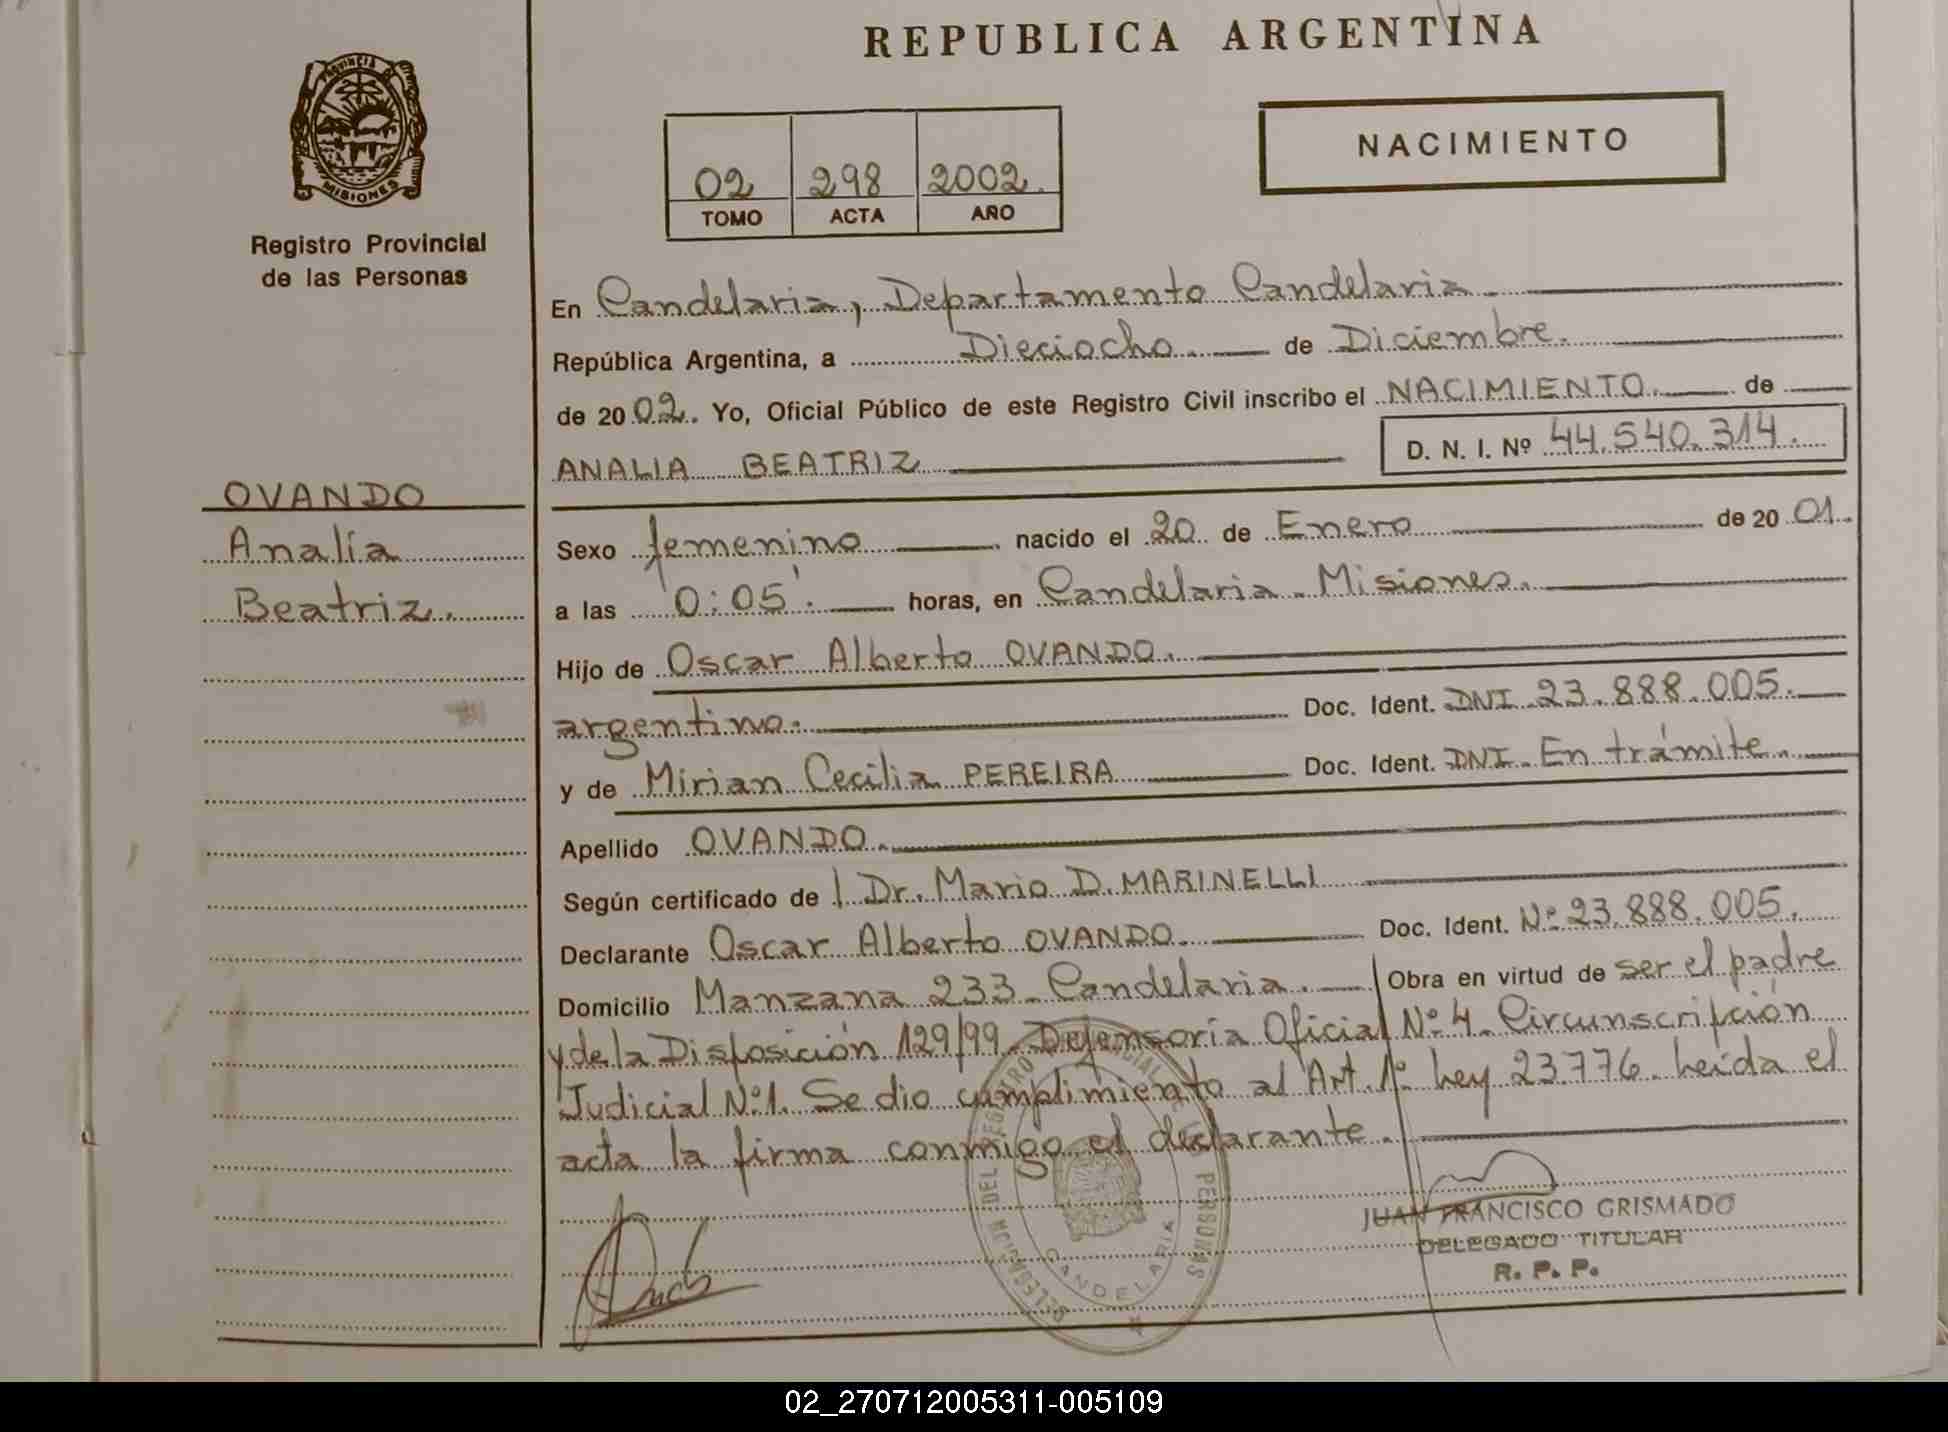 PROVINCIA DE
MISIONES
Registro Provincial
de las Personas
OVANDO
Analía
Beatriz.
REPUBLICA ARGENTINA
NACIMIENTO
02 298 2002.
TOMO ACTA AÑO
En Candelaria, Departamento Candelaria
República Argentina, a Dieciocho. de Diciembre.
de 20 02. Yo, Oficial Público de este Registro Civil inscribo el NACIMIENTO. de
ANALIA BEATRIZ D. N. I. Nº 44.540.314.
Sexo femenino nacido el 20 de Enero de 20 01.
a las 0:05'. horas, en Candelaria. Misiones.
Hijo de Oscar Alberto OVANDO.
argentino. Doc. Ident. DNI. 23.888.005.
y de Mirian Cecilia PEREIRA Doc. Ident. DNI. En trámite.
Apellido OVANDO.
Según certificado de l Dr. Mario D. MARINELLI
Declarante Oscar Alberto OVANDO. Doc. Ident. Nº 23.888.005.
Domicilio Manzana 233. Candelaria. Obra en virtud de ser el padre
y de la Disposición 129/99. Defensoría Oficial Nº 4. Circunscripción
Judicial Nº 1. Se dio cumplimiento al Art. 1º Ley 23.776. Leída el
acta la firma conmigo el declarante.
DELEGACION DEL REGISTRO PROVINCIAL DE LAS PERSONAS
CANDELARIA
JUAN FRANCISCO GRISMADO
DELEGADO TITULAR
R. P. P.
02_270712005311-005109